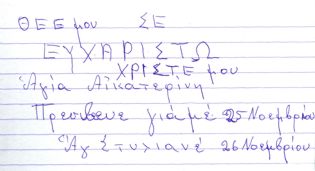 ΘΕΕ μου ΣΕ
ΕΥΧΑΡΙΣΤΩ
ΧΡΙΣΤΕ μου
Ἁγία Αἰκατερίνη
Πρεσβευε γιὰ μέ 25 Νοεμβρίου
Ἅγ Στυλιανέ 26 Νοεμβρίου